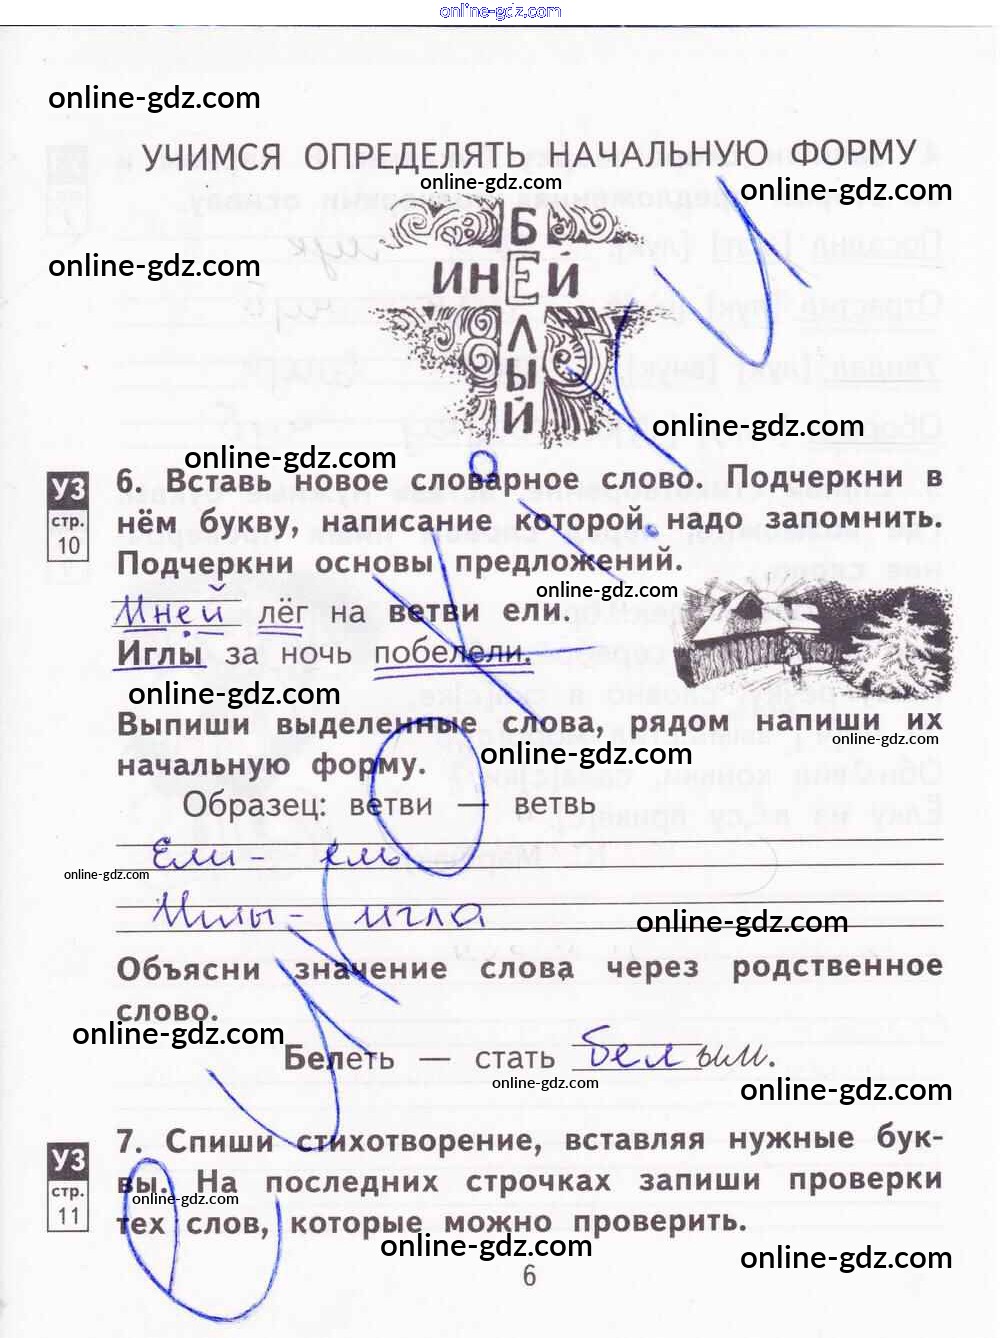 online-gdz.com
online-gdz.com
УЧИМСЯ ОПРЕДЕЛЯТЬ НАЧАЛЬНУЮ ФОРМУ
online-gdz.com
online-gdz.com
online-gdz.com
БЕЛЫЙ
ИНЕЙ
online-gdz.com
online-gdz.com
УЗ
стр.
10
6. Вставь новое словарное слово. Подчеркни в
нём букву, написание которой надо запомнить.
Подчеркни основы предложений.
online-gdz.com
Иней лёг на ветви ели.
Иглы за ночь побелели.
online-gdz.com
Выпиши выделенные слова, рядом напиши их
online-gdz.com
online-gdz.com
начальную форму.
Образец: ветви — ветвь
Ели - ель
online-gdz.com
Иглы - игла
online-gdz.com
Объясни значение слова через родственное
слово.
online-gdz.com
Белеть — стать белым.
online-gdz.com
online-gdz.com
УЗ
стр.
11
7. Спиши стихотворение, вставляя нужные бук-
вы. На последних строчках запиши проверки
online-gdz.com
тех слов, которые можно проверить.
online-gdz.com
online-gdz.com
6